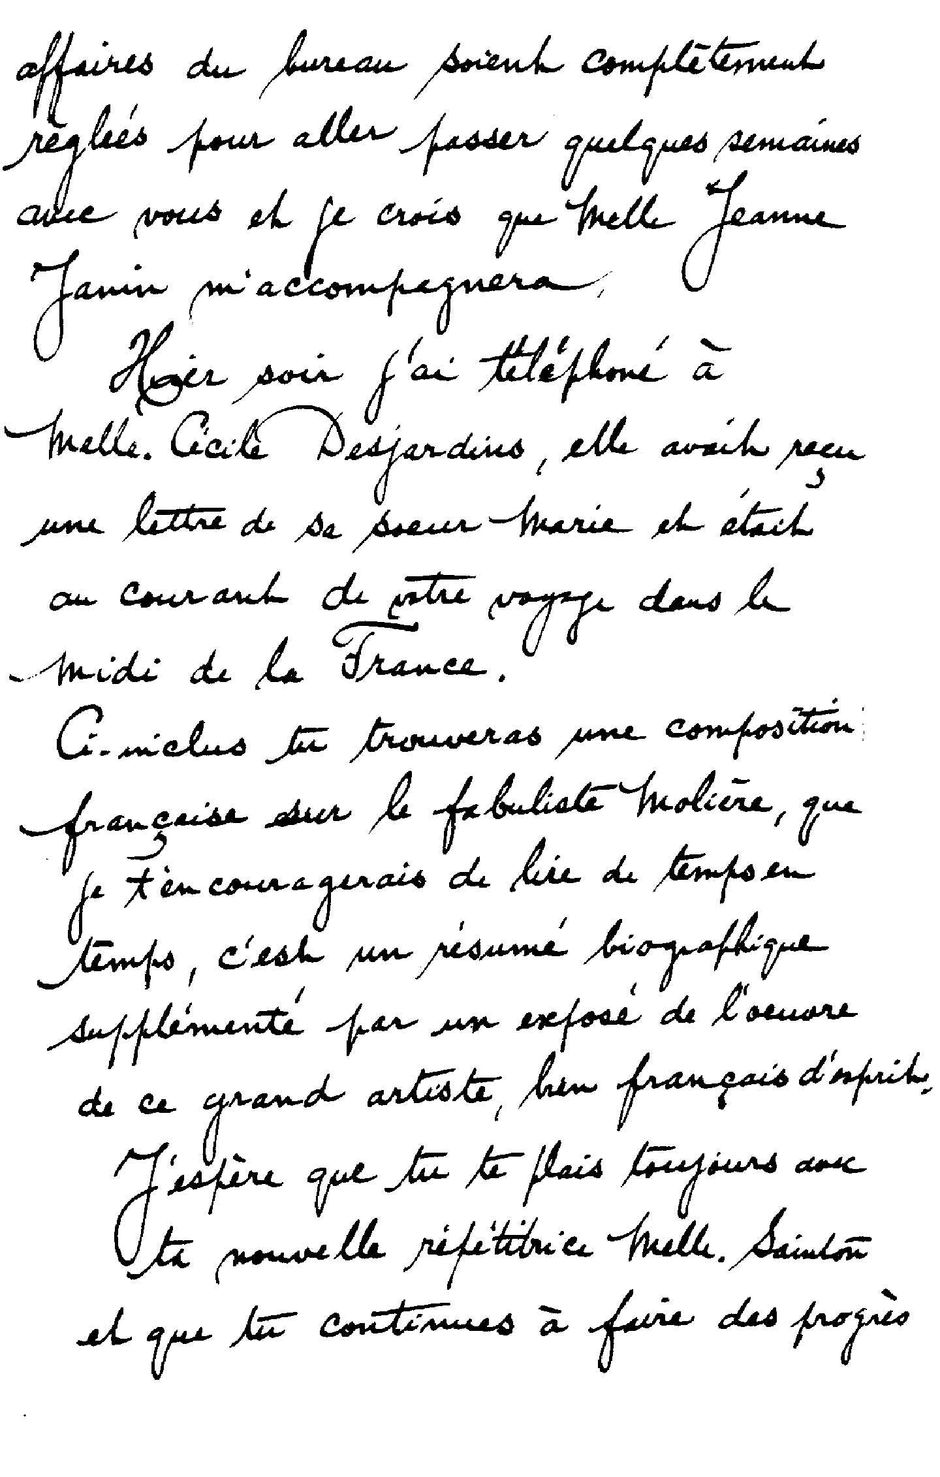 affaires du bureau soient complètement
réglées pour aller passer quelques semaines
avec vous et je crois que Melle Jeanne
Janin m'accompagnera.
Hier soir j'ai téléphoné à
Melle. Cécile Desjardins, elle avait reçu
une lettre de sa soeur Marie et était
au courant de votre voyage dans le
midi de la France.
Ci-inclus tu trouveras une composition
française sur le fabuliste Molière, que
je t'encouragerais de lire de temps en
temps, c'est un résumé biographique
supplémenté par un exposé de l'oeuvre
de ce grand artiste, bien français d'esprit.
J'espère que tu te plais toujours avec
ta nouvelle répétitrice Melle. Sainton
et que tu continues à faire des progrès